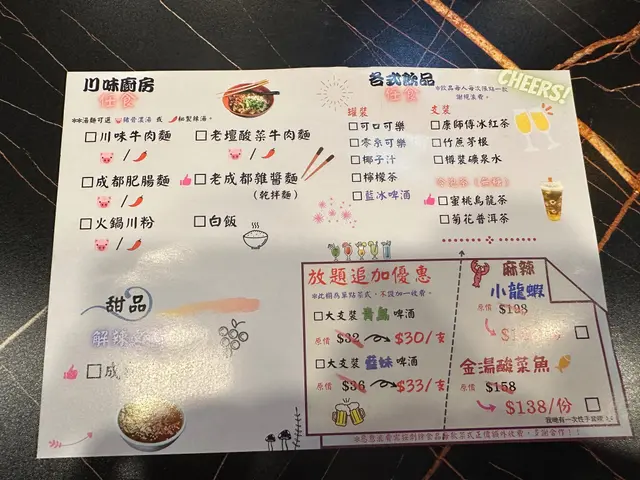 川味廚房
任食
**湯麵可選 豬骨濃湯 或 秘製辣湯。
川味牛肉麵
老壇酸菜牛肉麵
成都肥腸麵
老成都雜醬麵
(乾拌麵)
火鍋川粉
白飯
甜品
解辣
成
各式飲品
任食
CHEERS!
罐裝
可口可樂
零系可樂
椰子汁
檸檬茶
藍冰啤酒
支裝
康師傅冰紅茶
竹蔗茅根
樽裝礦泉水
蜜桃烏龍茶
菊花普洱茶
放題追加優惠
*此類為單點菜式,不設加一收費。
大支裝 青島 啤酒
原價 $32 $30/支
大支裝 藍妹 啤酒
原價 $36 $33/支
麻辣
小龍蝦
原價 $198
金湯酸菜魚
原價 $158
$138/份